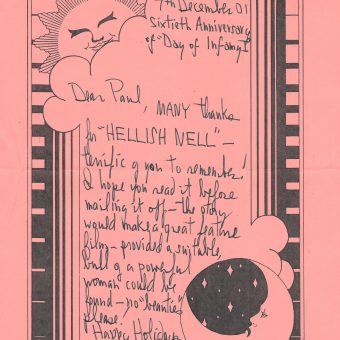 7th December 01
Sixtieth Anniversary
of "Day of Infamy"
Dear Paul, MANY thanks
for "HELLISH NELL" —
terrific of you to remember!
I hope you read it before
mailing it off — the story
would make a great feature
film — provided a suitable,
bull of a powerful
woman could be
found — no "beauties"
please.
Happy Holidays